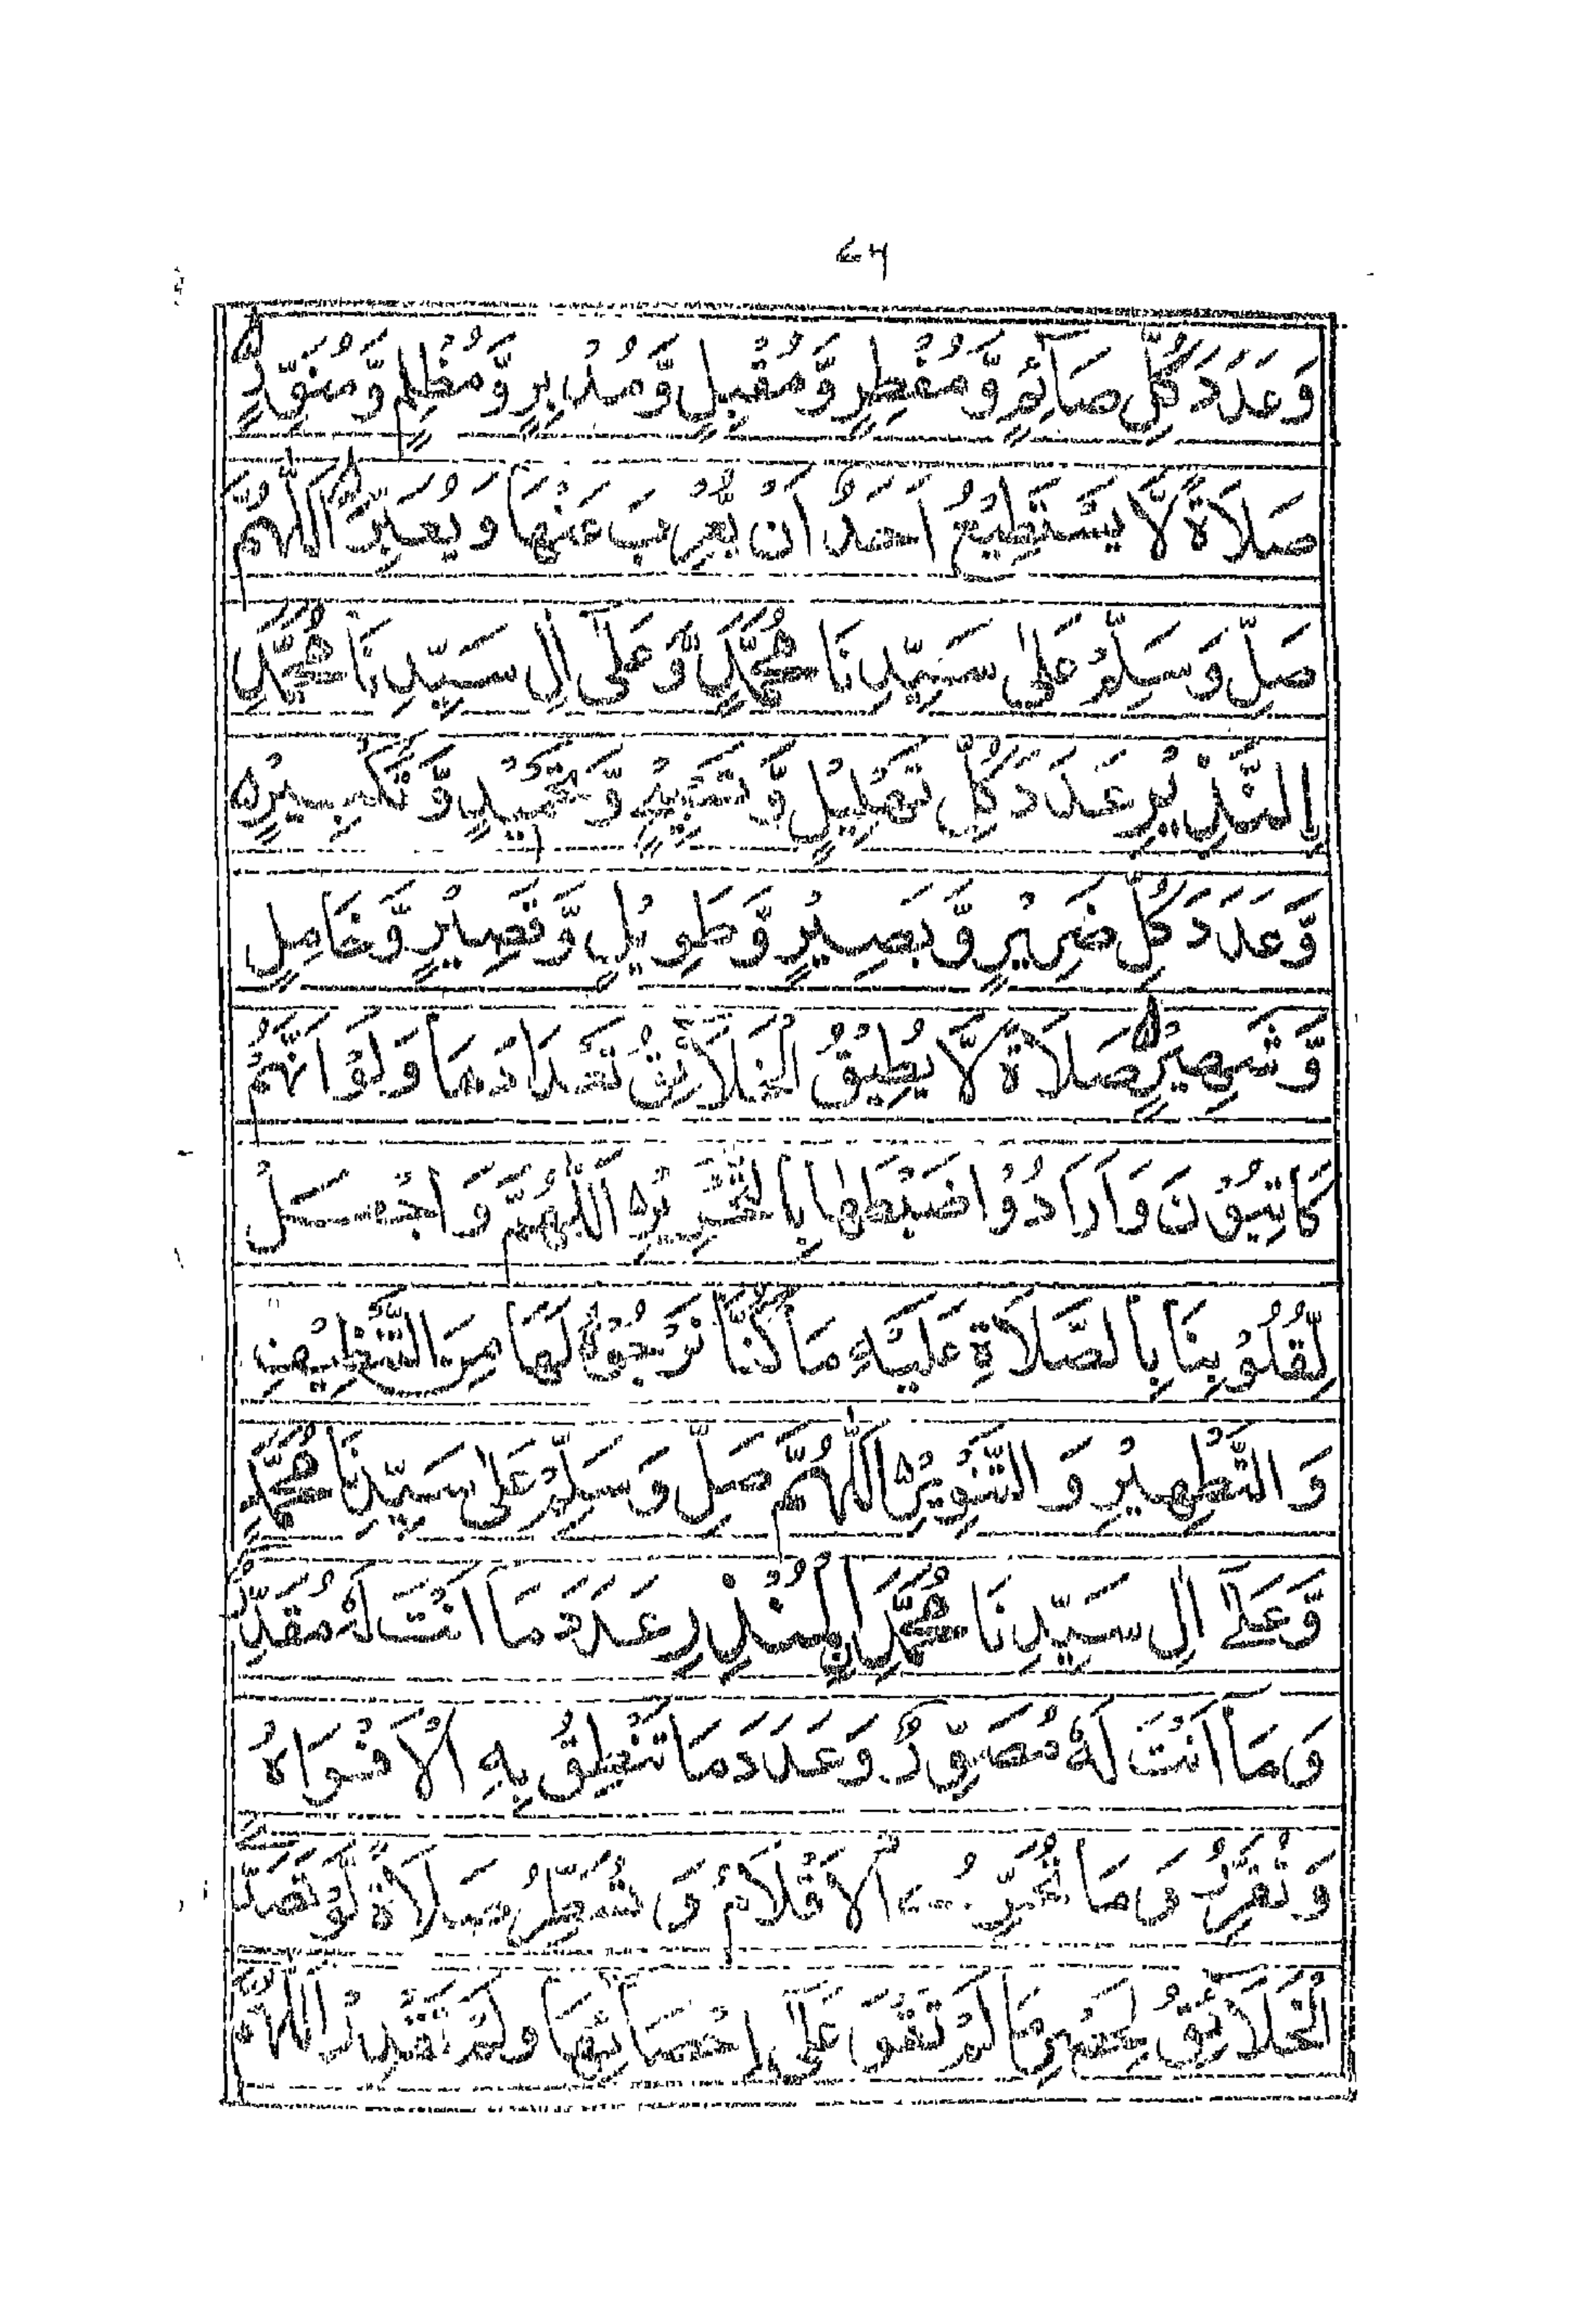 ٤٦
وَعَدَدَ كُلِّ صَآئِمٍ وَّمُفْطِرٍ وَّمُقْبِلٍ وَّمُدْبِرٍ وَّمُظْلِمٍ وَّمُنَوَّرٍ
صَلَاةً لَّا يَسْتَطِيْعُ اَحَدٌ اَنْ يُّعْرِبَ عَنْهَا وَيُعَبِّرَ اَللّٰهُمَّ
صَلِّ وَسَلِّمْ عَلٰى سَيِّدِنَا مُحَمَّدٍ وَّعَلٰٓى اٰلِ سَيِّدِنَا مُحَمَّدِ
نِ النَّذِيْرِ عَدَدَ كُلِّ تَهْلِيْلٍ وَّتَحْمِيْدٍ وَّتَكْبِيْرٍ
وَّعَدَدَ كُلِّ ضَرِيْرٍ وَّبَصِيْرٍ وَّطَوِيْلٍ وَّقَصِيْرٍ وَّخَامِلٍ
وَّشَهِيْرٍ صَلَاةً لَّا يُطِيْقُ الْخَلَآئِقُ تَعْدَادَهَا وَلَوْ اَنَّهُمْ
وَاَرَادُوْا ضَبْطَهَا بِالتَّحْرِيْرِ اَللّٰهُمَّ وَاجْعَلْ
لِقُلُوْبِنَا بِالصَّلَاةِ عَلَيْهِ مَا كُنَّا نَرْجُوْهُ لَهَا مِنَ التَّعْظِيْمِ
وَالتَّطْهِيْرِ وَالتَّنْوِيْرِ اَللّٰهُمَّ صَلِّ وَسَلِّمْ عَلٰى سَيِّدِنَا مُحَمَّدٍ
وَّعَلٰٓى اٰلِ سَيِّدِنَا مُحَمَّدِ نِ الْمُنْذِرِ عَدَدَ مَا اَنْتَ لَهٗ مُقَدِّرٌ
وَمَا اَنْتَ لَهٗ مُصَوِّرٌ وَعَدَدَ مَا تَنْطِقُ بِهِ الْاَفْوَاهُ
وَتُقَرِّرُ وَمَا الْاَقْلَامُ وَتُسَطِّرُ صَلَاةً لَّوْ تَصَدَّ
الْخَلَآئِقُ لِحَصْرِهَا لَمْ تَقْوَ عَلٰٓى اِحْصَآئِهَا وَلَمْ تَقْدِرْ اَللّٰهُمَّ